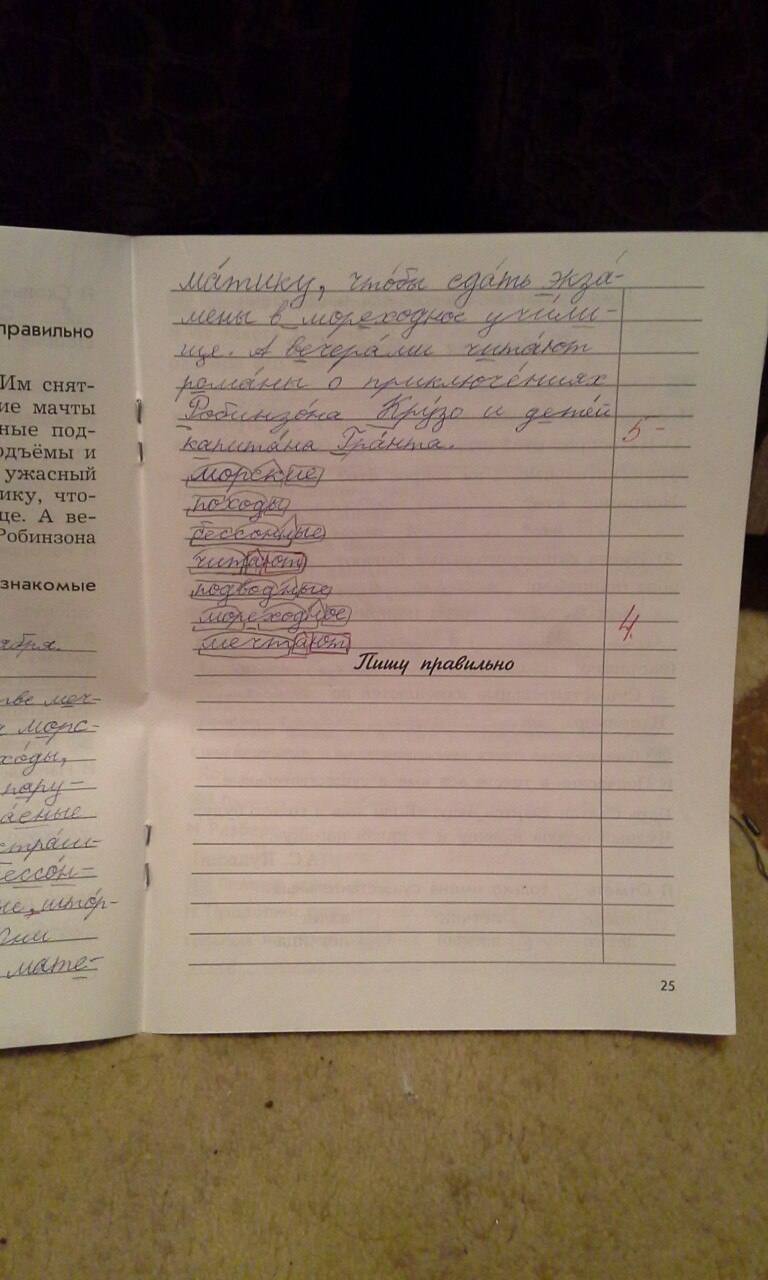 правильно
Им снят-
ие мачты
ные под-
одъёмы и
ужасный
ику, что-
це. А ве-
Робинзона
знакомые
абря.
тве меч-
морс-
хо́ды,
пару-
а́сные
стра́ш-
бессо́н-
ые, што́р-
мате-
ма́тику, что́бы сда́ть экза́-
мены в мореходное учи́ли-
ще. А вечера́ми чита́ют
рома́ны о приключе́ниях
Робинзо́на Кру́зо и дете́й
капита́на Гра́нта.
5-
морские
походы
бессонные
читают
подводные
мореходное
4.
мечтают
Пишу правильно
25